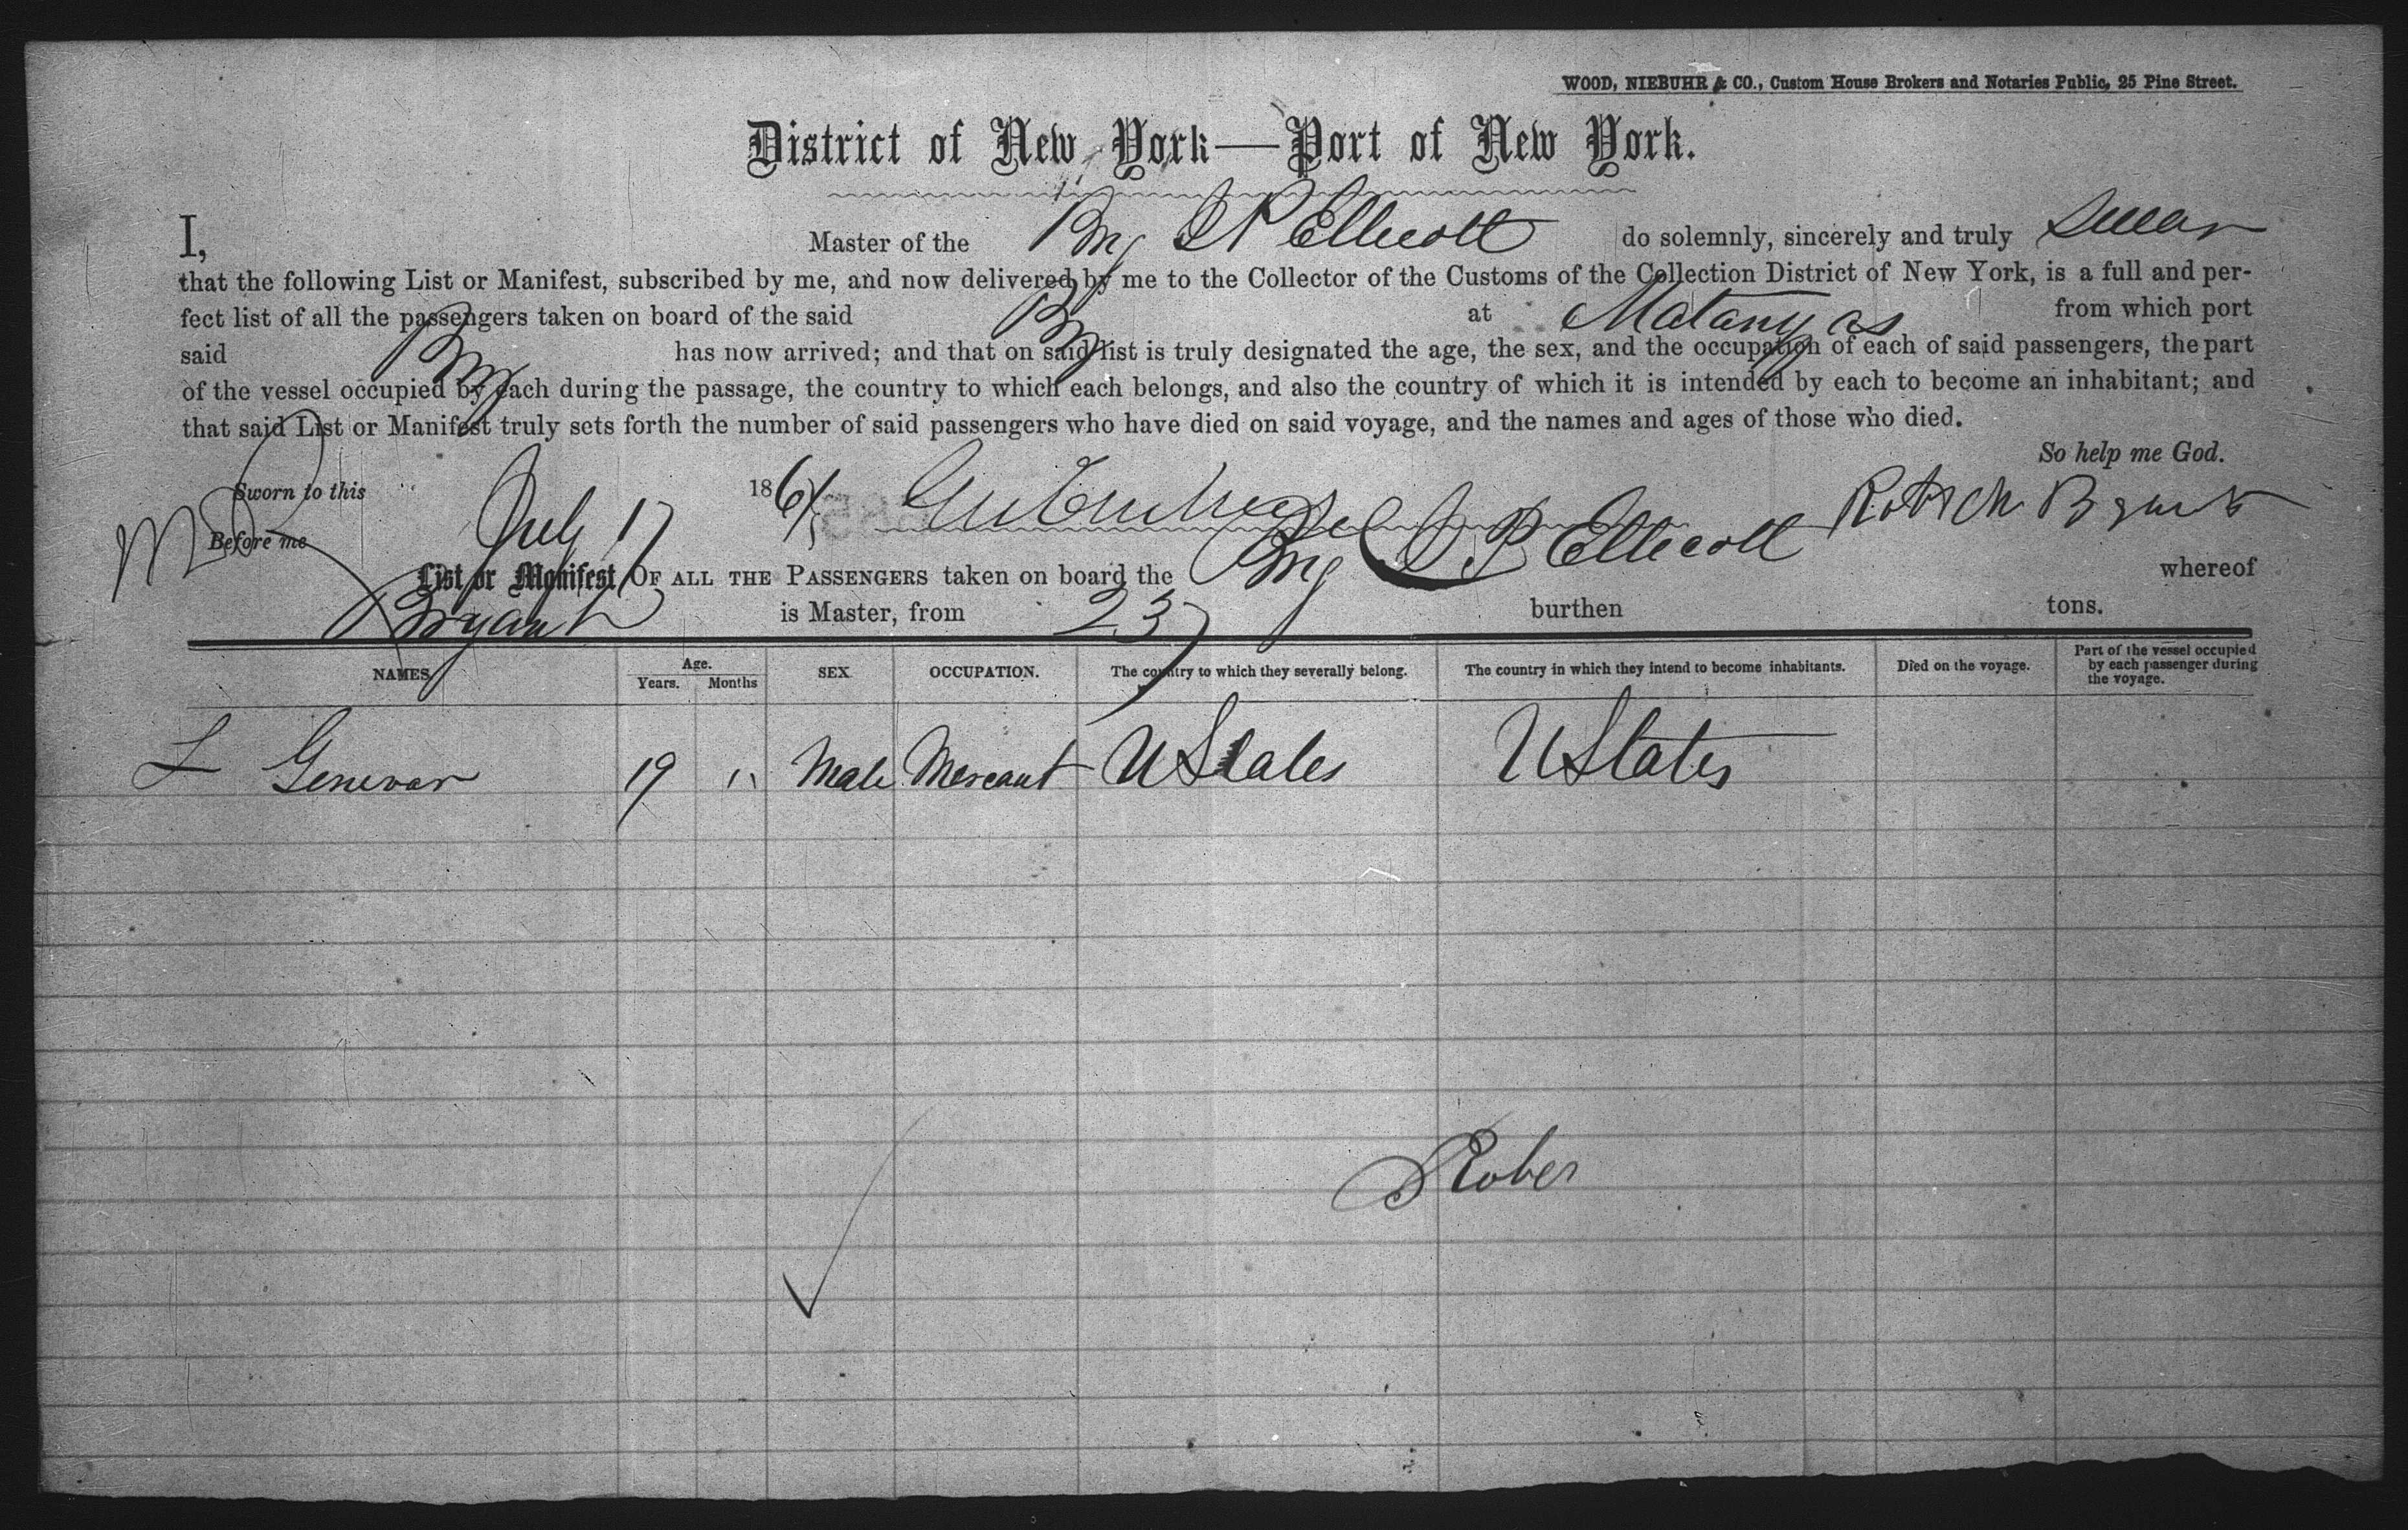 WOOD, NIEBUHR & CO., Custom House Brokers and Notaries Public, 25 Pine Street.
District of New York—Port of New York.
I, Master of the Brig I P Ellicott do solemnly, sincerely and truly swear
that the following List or Manifest, subscribed by me, and now delivered by me to the Collector of the Customs of the Collection District of New York, is a full and per-
fect list of all the passengers taken on board of the said Brig at Matanzas from which port
said Brig has now arrived; and that on said list is truly designated the age, the sex, and the occupation of each of said passengers, the part
of the vessel occupied by each during the passage, the country to which each belongs, and also the country of which it is intended by each to become an inhabitant; and
that said List or Manifest truly sets forth the number of said passengers who have died on said voyage, and the names and ages of those who died.
So help me God.
Sworn to this July 17 186
Before me
List or Manifest OF ALL THE PASSENGERS taken on board the Brig P Ellicott whereof
Bryant is Master, from 237 burthen tons.
NAMES Age. Years. Months SEX OCCUPATION. The country to which they severally belong. The country in which they intend to become inhabitants. Died on the voyage. Part of the vessel occupied by each passenger during the voyage.
L Genevar 19 " Male Mercant U States U States